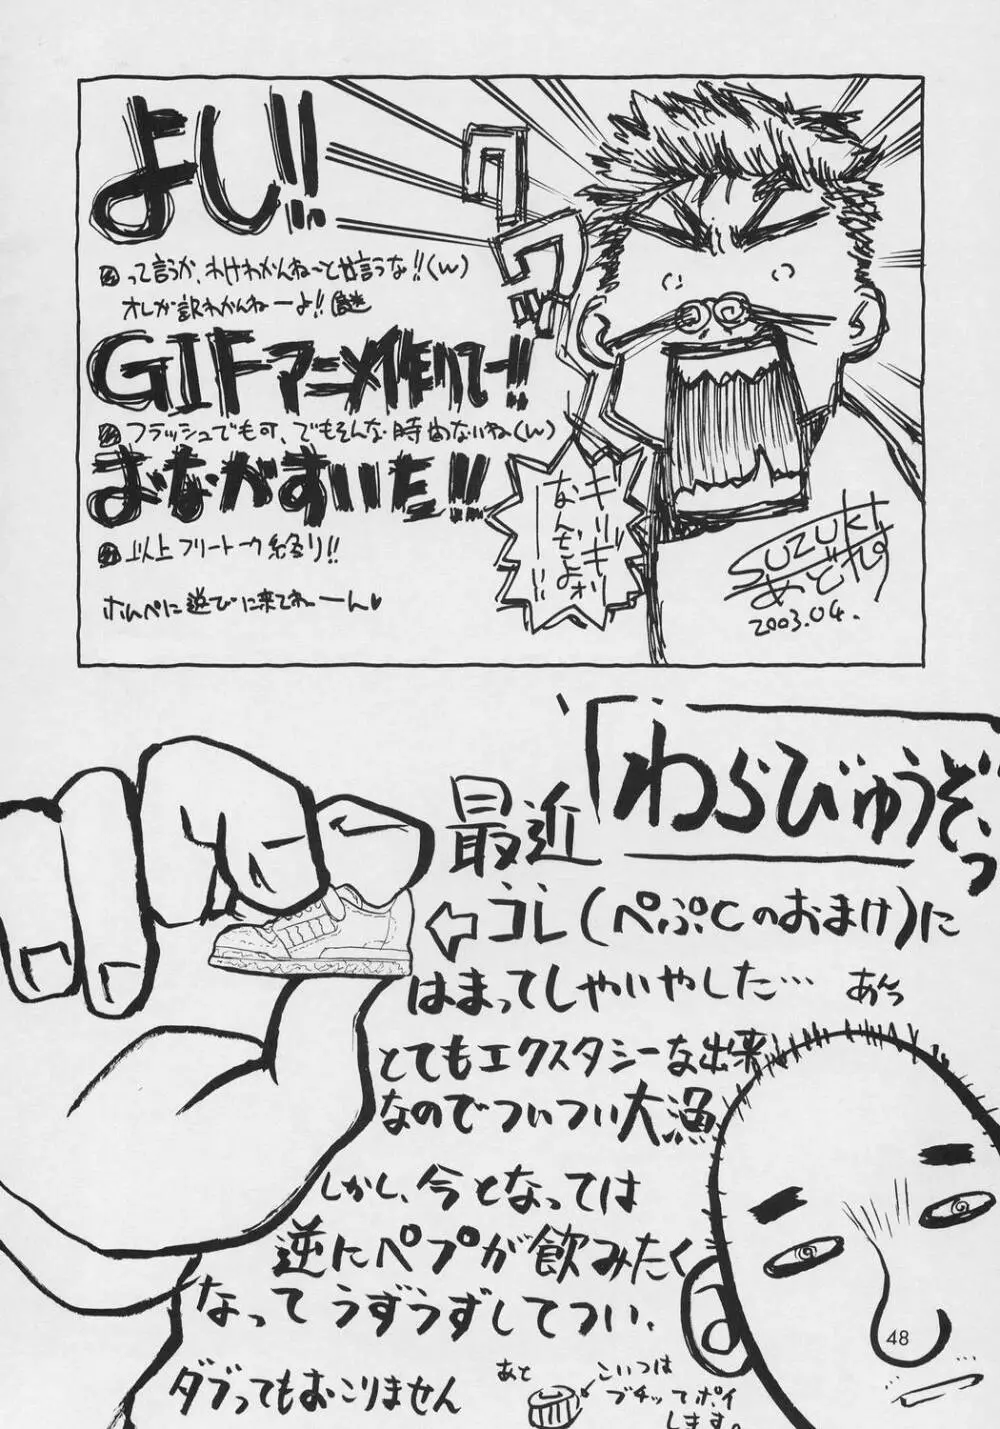 よし!!
って言うか、わけわかんねーとか言うな!!(w)
オレが訳わかんねーよ!!謎
GIFアニメ作りてー!!
フラッシュでも可、でもそんな時間ないね(w)
おなかすいた!!!
以上フリートーク終り!!
ホムペに遊びに来てねーーん♥
ワ
ワ
なんだよォー!!
SUZUKI
あどれす
2003.04.
「わらびゅうぞっ
最近
コレ(ぺぷCのおまけ)に
はまってしやいやした…
あんっ
とてもエクスタシーな出来
なのでついつい大漁
しかし、今となっては
逆にペプが飲みたく
なってうずうずしてつい、
ダブってもおこりません
あと
こいつは
ブチッてポイ
します。
48